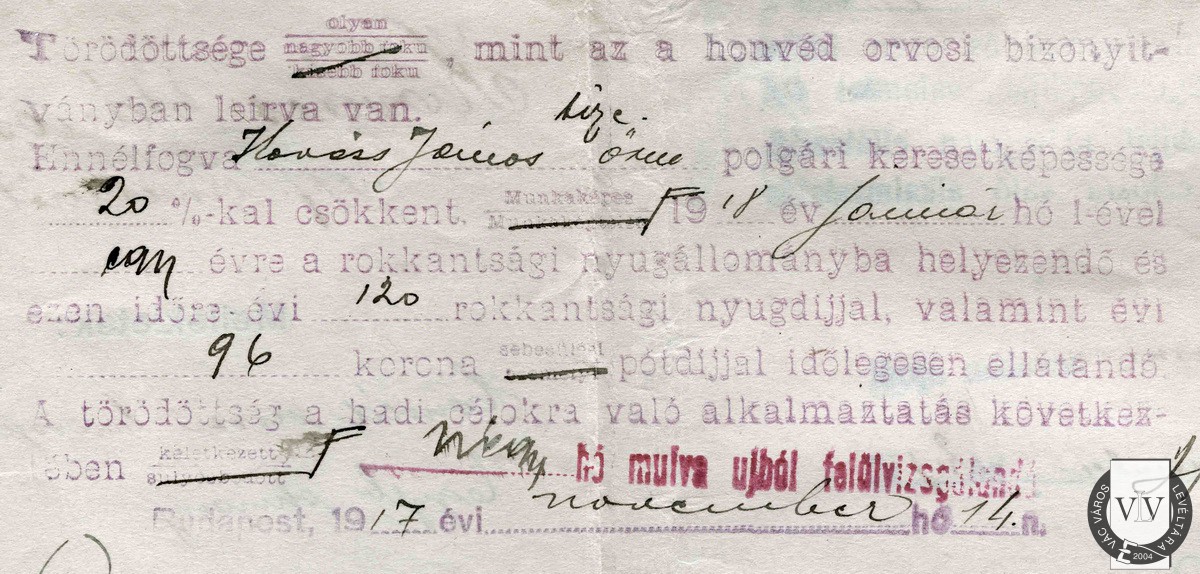 olyan
Törödöttsége nagyobb foku, mint az a honvéd orvosi bizonyit-
kisebb foku
ványban leirva van.
tize.
Ennélfogva Kováss János őrm polgári keresetképessége
20 %-kal csökkent. Munkaképes 1918 év Január hó 1-ével
egy évre a rokkantsági nyugállományba helyezendő és
ezen időre évi 120 rokkantsági nyugdijjal, valamint évi
96 korona sebesülési pótdijjal időlegesen ellátandó.
A törödöttség a hadi célokra való alkalmaztatás következ-
tében keletkezett
sulyosbodott hó mulva ujból felülvizsgálandó
Budapest, 1917 évi november hó 14. n.
VÁC VÁROS LEVÉLTÁRA
VVL
2004